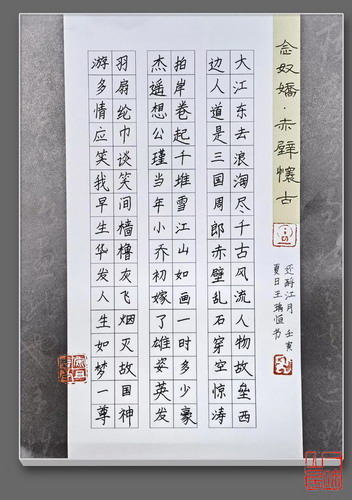 念奴嬌·赤壁懷古
大江东去浪淘尽千古风流人物故垒西
边人道是三国周郎赤壁乱石穿空惊涛
拍岸卷起千堆雪江山如画一时多少豪
杰遥想公瑾当年小乔初嫁了雄姿英发
羽扇纶巾谈笑间樯橹灰飞烟灭故国神
游多情应笑我早生华发人生如梦一尊
还酹江月 壬寅
夏日王瑞恒书